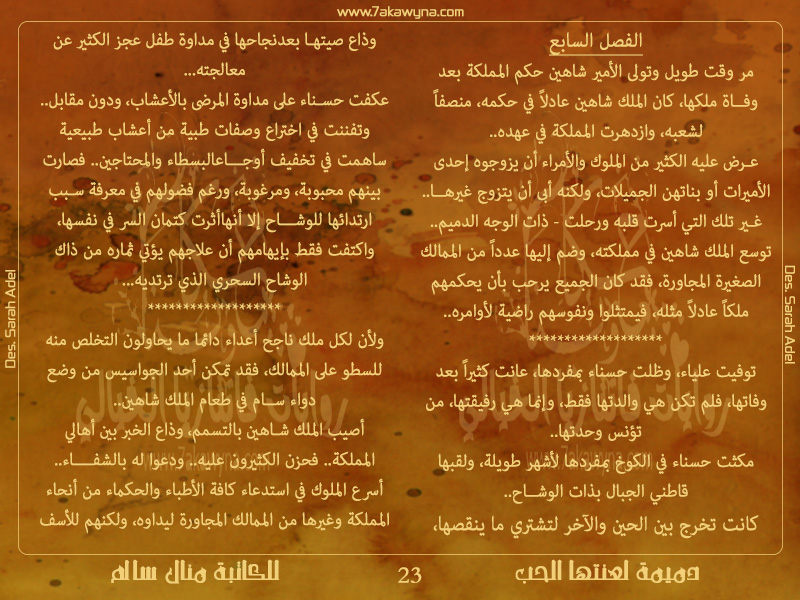 www.7akawyna.com
الفصل السابع
مر وقت طويل وتولى الأمير شاهين حكم المملكة بعد
وفــاة ملكها، كان الملك شاهين عادلاً في حكمه، منصفاً
لشعبه، وازدهرت المملكة في عهده..
عـرض عليه الكثير من الملوك والأمراء أن يزوجوه إحدى
الأميرات أو بناتهن الجميلات، ولكنه أبى أن يتزوج غيرهــا..
غـير تلك التي أسرت قلبه ورحلت - ذات الوجه الدميم..
توسع الملك شاهين في مملكته، وضم إليها عدداً من الممالك
الصغيرة المجاورة، فقد كان الجميع يرحب بأن يحكمهم
ملكاً عادلاً مثله، فيمتثلوا ونفوسهم راضية لأوامره..
*******************
توفيت علياء، وظلت حسناء بمفردها، عانت كثيراً بعد
وفاتها، فلم تكن هي والدتها فقط، وإنما هي رفيقتها، من
تؤنس وحدتها..
مكثت حسناء في الكوخ بمفردها لأشهر طويلة، ولقبها
قاطني الجبال بذات الوشــاح..
كانت تخرج بين الحين والآخر لتشتري ما ينقصها،
وذاع صيتهـا بعدنجاحها في مداوة طفل عجز الكثير عن
معالجته...
عكفت حسـناء على مداوة المرضى بالأعشاب، ودون مقابل..
وتفننت في اختراع وصفات طبية من أعشاب طبيعية
ساهمت في تخفيف أوجــــاعالبسطاء والمحتاجين.. فصارت
بينهم محبوبة، ومرغوبة، ورغم فضولهم في معرفة سـبب
ارتدائها للوشــــاح إلا أنهاأثرت كتمان السر في نفسها،
واكتفت فقط بإيهامهم أن علاجهم يؤتي ثماره من ذاك
الوشاح السحري الذي ترتديه...
*******************
ولأن لكل ملك ناجح أعداء دائما ما يحاولون التخلص منه
للسطو على الممالك، فقد تمكن أحد الجواسيس من وضع
دواء ســـام في طعام الملك شاهين..
أصيب الملك شـاهين بالتسمم، وذاع الخبر بين أهالي
المملكة.. فحزن الكثيرون عليه.. ودعوا له بالشفــــاء..
أسرع الملوك في استدعاء كافة الأطباء والحكماء من أنحاء
المملكة وغيرها من الممالك المجاورة ليداوه، ولكنهم للأسف
Des. Sarah Adel
Des. Sarah Adel
دميمة لعنتها الحب
23
للكاتبة منال سالم